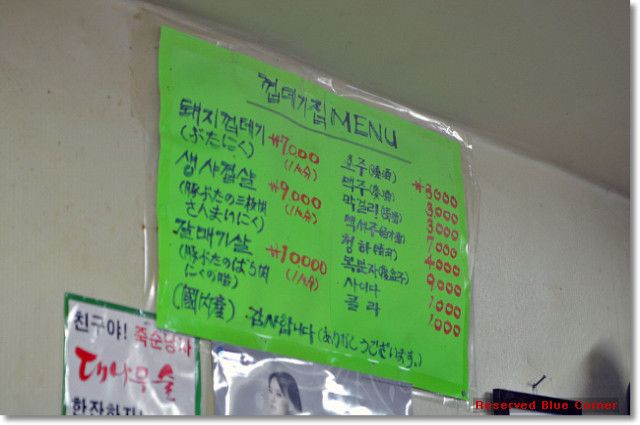 껍데기집 MENU
돼지껍데기 ₩7,000
(ぶたにく) (1人分)
생삼겹살 ₩9,000
(豚ぶたの三枚肉
さんまいにく) (1人分)
갈매기살 ₩10000
(豚ぶたのばら肉
にくの脂) (1人分)
(国内産)
소주(焼酒) ₩3000
맥주 3,000
막걸리 3000
백세주 7,000
청하 4000
복분자(覆盆子) 9,000
사이다 1,000
콜라 1,000
감사합니다 (ありがとうございます。)
친구야! 죽순당사
대나무술
한잔하자!
Reserved Blue Corner